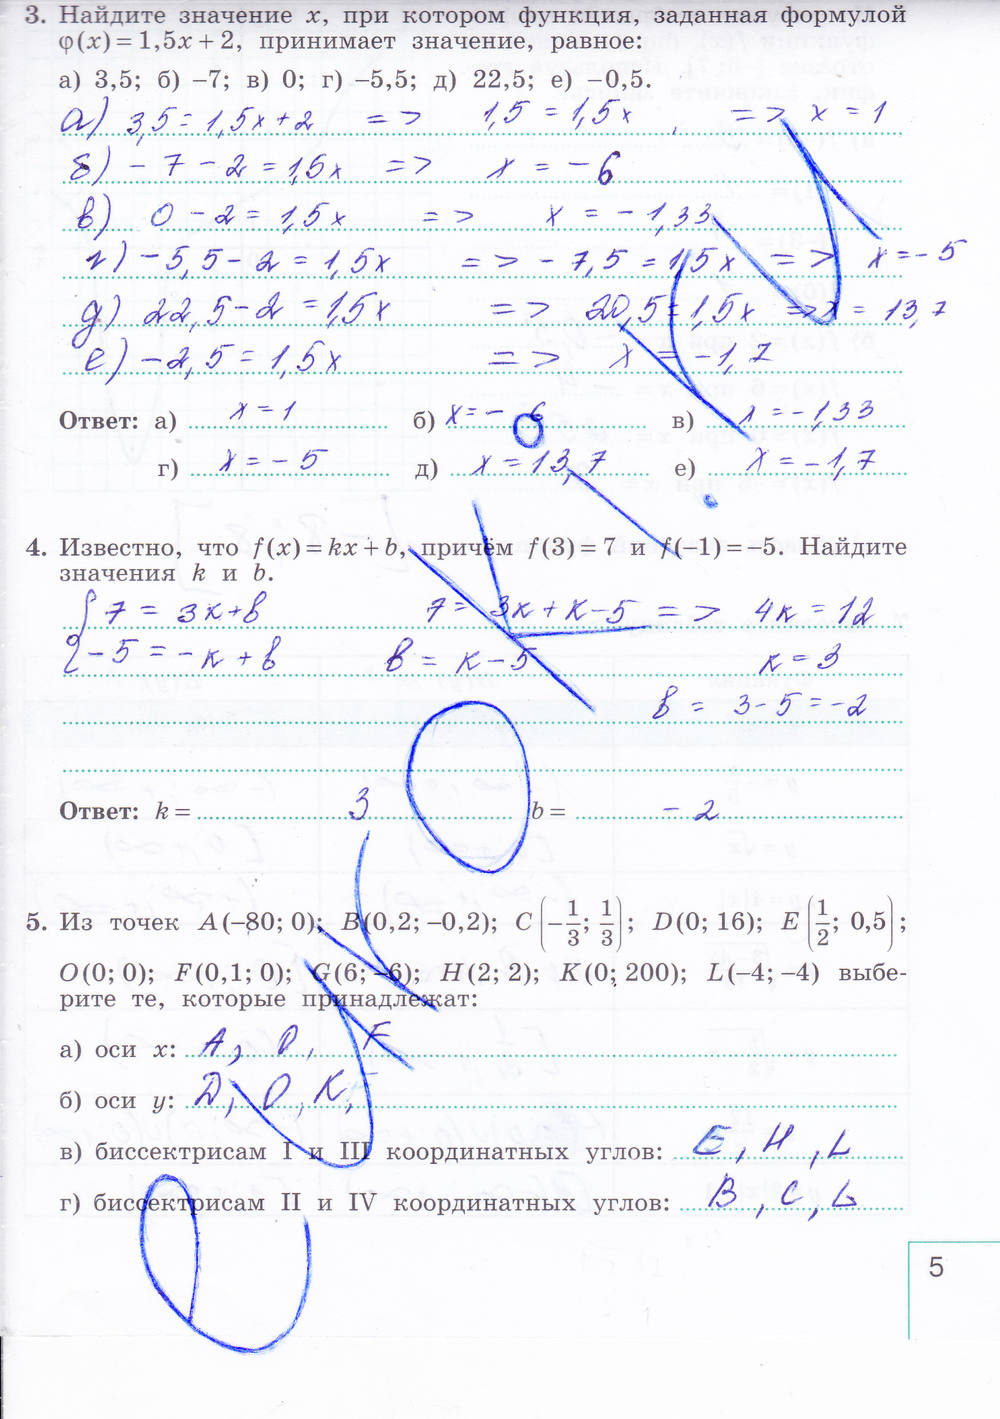 3. Найдите значение x, при котором функция, заданная формулой
φ(x) = 1,5x + 2, принимает значение, равное:
а) 3,5; б) −7; в) 0; г) −5,5; д) 22,5; е) −0,5.
а) 3,5 = 1,5x + 2 => 1,5 = 1,5x => x = 1
б) − 7 − 2 = 1,5x => x = − 6
в) 0 − 2 = 1,5x => x = − 1,33
г) − 5,5 − 2 = 1,5x => − 7,5 = 1,5x => x = − 5
д) 22,5 − 2 = 1,5x => 20,5 = 1,5x => x = 13,7
е) − 2,5 = 1,5x => x = −1,7
Ответ: а) x = 1 б) x = − 6 в) x = −1,33
г) x = − 5 д) x = 13,7 е) x = −1,7
4. Известно, что f(x) = kx + b, причём f(3) = 7 и f(−1) = −5. Найдите
значения k и b.
{ 7 = 3к + в 7 = 3к + к − 5 => 4к = 12
− 5 = −к + в в = к − 5 к = 3
в = 3 − 5 = −2
Ответ: k = 3 b = − 2
5. Из точек A(−80; 0); B(0,2; −0,2); C(−1/3; 1/3); D(0; 16); E(1/2; 0,5);
O(0; 0); F(0,1; 0); G(6; −6); H(2; 2); K(0; 200); L(−4; −4) выбе-
рите те, которые принадлежат:
а) оси x: A, O, F
б) оси y: D, O, K,
в) биссектрисам I и III координатных углов: E, H, L
г) биссектрисам II и IV координатных углов: B, C, G
5